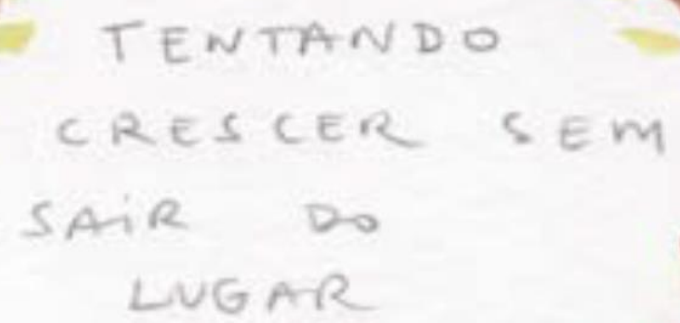 TENTANDO
CRESCER SEM
SAiR DO
LUGAR